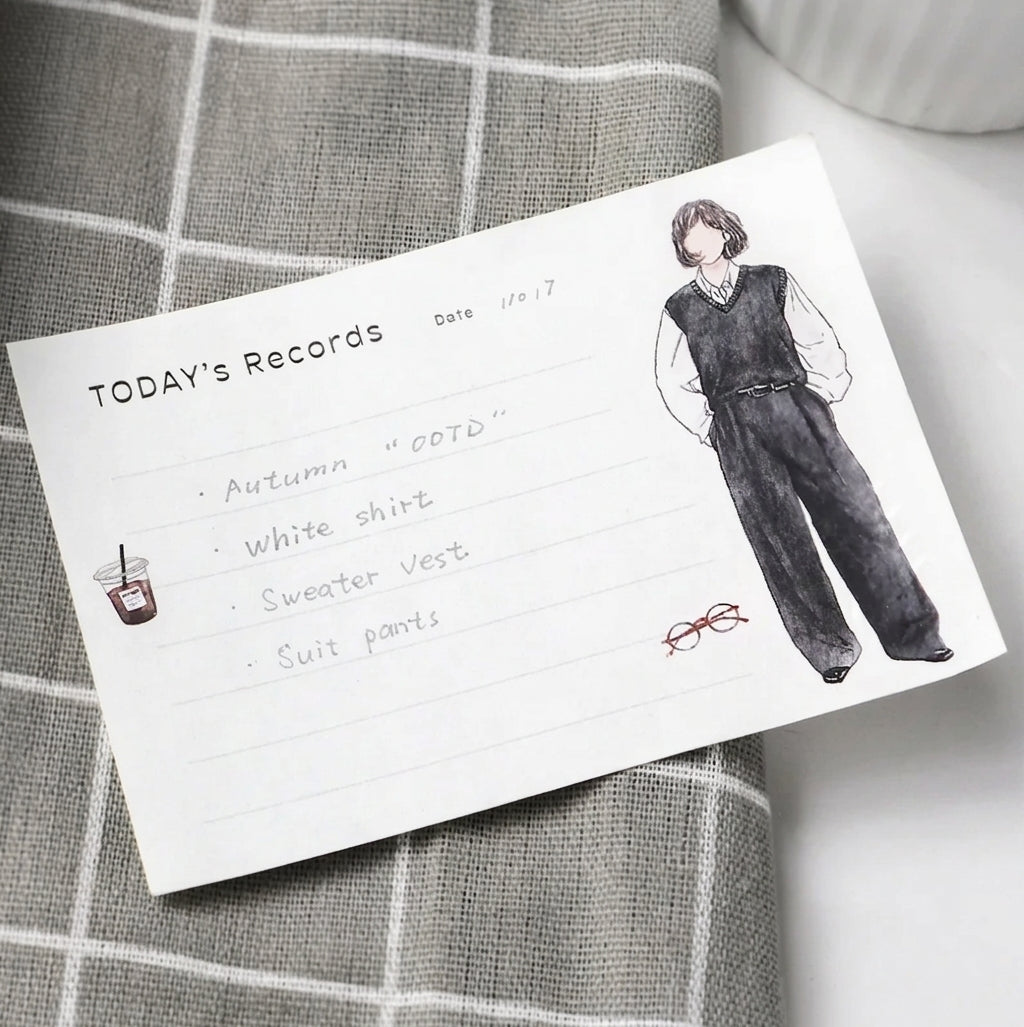 TODAY's Records Date 11017
· Autumn "OOTD"
· White shirt
· Sweater vest
· Suit pants